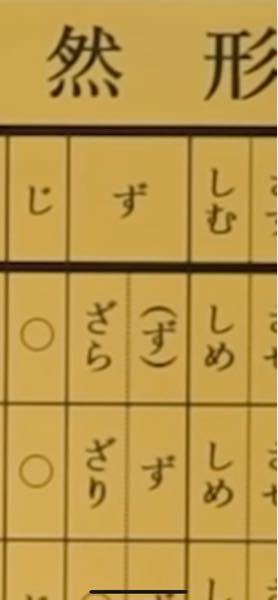 形然
しむ
ず
じ
しめ
(ず)
ざら
○
しめ
ず
ざり
○